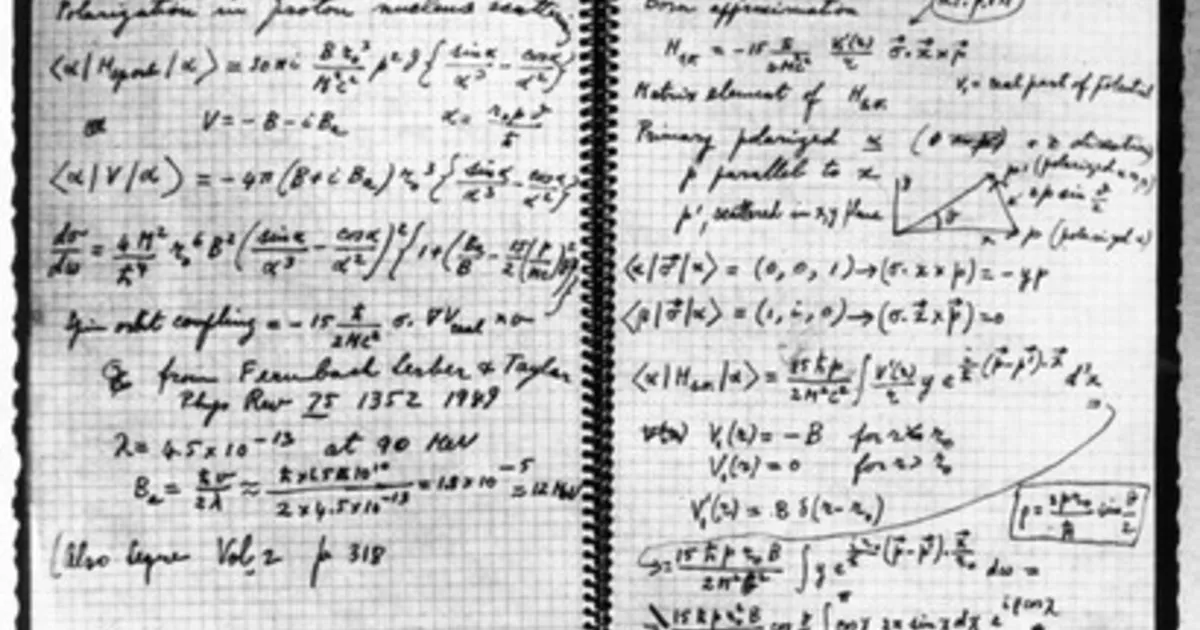 Polarization in proton nucleus scattering
⟨α| H_sporb |α⟩ = 30πi (B r₀³)/(M²c²) p² ϑ { sin α/α³ − cos α/α² }
V = −B − i Bₐ      α = r₀ p ϑ/ħ
⟨α|V|α⟩ = −4π (B + i Bₐ) r₀³ { sin α/α³ − cos α/α² }
dσ/dω = (4 M²/ħ⁴) r₀⁶ B² ( sin α/α³ − cos α/α² )² { 1 + ( Bₐ/B − 15/2 (p/mc)² ϑ )² }
Spin orbit coupling = −15 ħ/(2Mc²) σ. ∇V_real × v
from Fernbach Serber & Taylor
Phys Rev 75 1352 1949
λ = 4.5×10⁻¹³ at 90 MeV
Bₐ = ħv/2λ ≈ /(2 × 4.5×10⁻¹³) = 1.8 × 10⁻⁵ = 12 MeV
(Also Segre Vol. 2 p 318
Born approximation
= −15 ħ/(2Mc²) V'(r)/r σ⃗. x⃗ × p⃗
V₁ = real part of potential
Matrix element of
Primary polarized
direction
p parallel to x
p' (polarized
p', scattered in x,y plane
y
2p sin ϑ/2
ϑ
x
p (polarized α)
⟨α|σ⃗|α⟩ = (0, 0, 1) → (σ. x × p) = −yp
⟨β|σ⃗|α⟩ = (1, i, 0) → (σ. x⃗ × p⃗) = 0
⟨α|H|α⟩ = (15 ħ p)/(2M²c²) ∫ V'(r)/r y e^{i/ħ (p⃗−p⃗')·x⃗} d³x
=
V₁(r) = −B for r < r₀
V₁(r) = 0 for r > r₀
V₁'(r) = B δ(r − r₀)
ρ = 2pr₀/ħ sin ϑ/2
= (15 ħ p r₀ B)/(2M²c²) ∫ y e^{(p⃗−p⃗')·x⃗/r₀} dω =